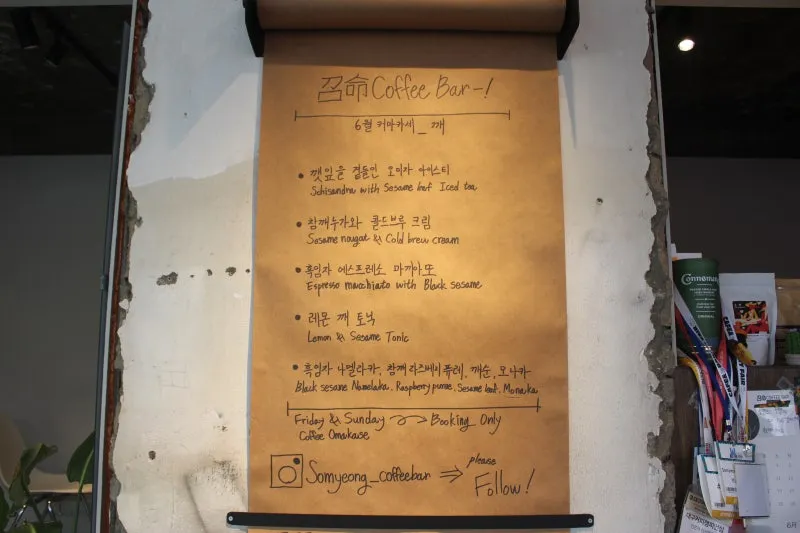 召命 Coffee Bar-!
6월 커마카세_ 깨
• 깻잎을 곁들인 오미자 아이스티
Schisandra with Sesame leaf Iced tea
• 참깨누가와 콜드브루 크림
Sesame nougat & Cold brew cream
• 흑임자 에스프레소 마끼아또
Espresso macchiato with Black sesame
• 레몬 깨 토닉
Lemon & Sesame Tonic
• 흑임자 나멜라카, 참깨 라즈베리 퓨레, 깨순, 모나카
Black sesame Namelaka. Raspberry puree. Sesame leaf. Monaka
Friday & Sunday → Booking Only
Coffee Omakase
Somyeong_coffeebar ⇒ please
Follow!